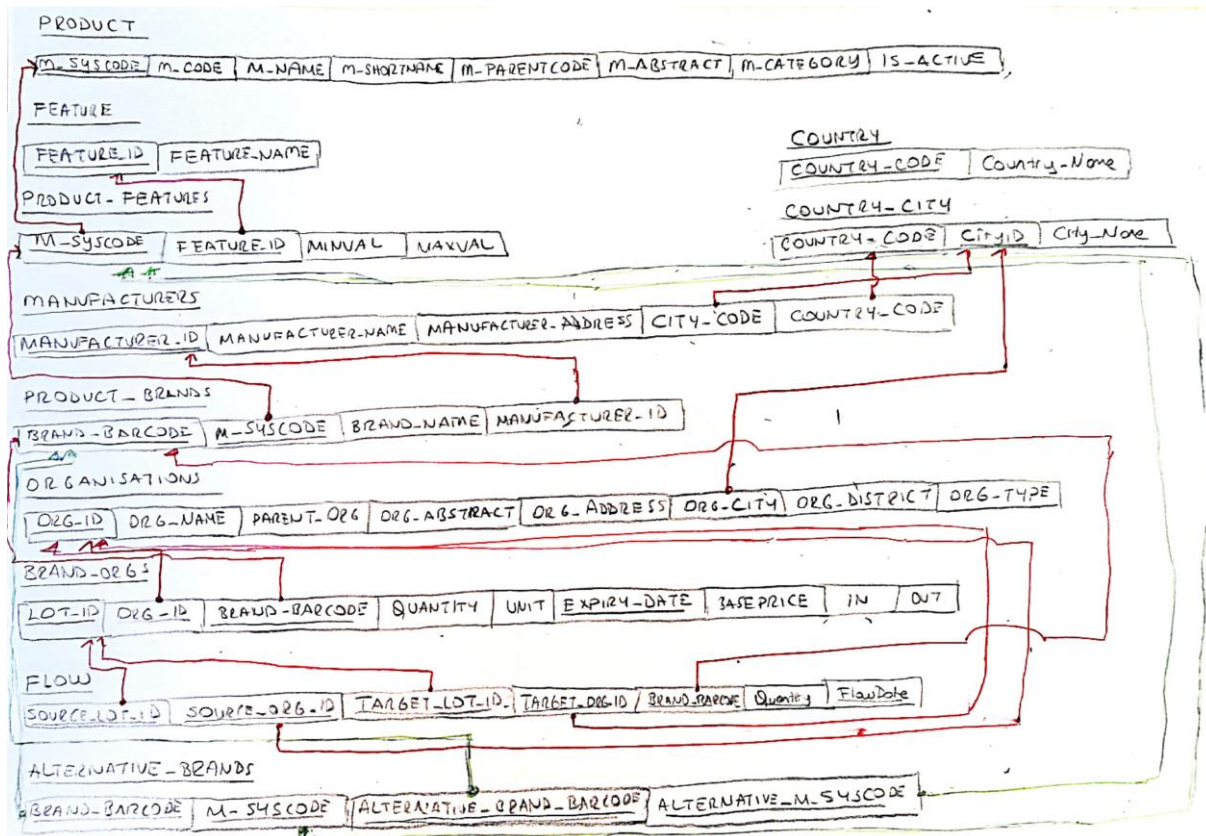 PRODUCT
M_SYSCODE M_CODE M_NAME M_SHORTNAME M_PARENTCODE M_ABSTRACT M_CATEGORY IS_ACTIVE
FEATURE
FEATURE_ID FEATURE_NAME
COUNTRY
COUNTRY_CODE Country_Name
PRODUCT_FEATURES
M_SYSCODE FEATURE_ID MINVAL MAXVAL
COUNTRY_CITY
COUNTRY_CODE CityID City_Name
MANUFACTURERS
MANUFACTURER_ID MANUFACTURER_NAME MANUFACTURER_ADDRESS CITY_CODE COUNTRY_CODE
PRODUCT_BRANDS
BRAND_BARCODE M_SYSCODE BRAND_NAME MANUFACTURER_ID
ORGANISATIONS
ORG_ID ORG_NAME PARENT_ORG ORG_ABSTRACT ORG_ADDRESS ORG_CITY ORG_DISTRICT ORG_TYPE
BRAND_ORGS
LOT_ID ORG_ID BRAND_BARCODE QUANTITY UNIT EXPIRY_DATE BASEPRICE IN OUT
FLOW
SOURCE_LOT_ID SOURCE_ORG_ID TARGET_LOT_ID TARGET_ORG_ID BRAND_BARCODE Quantity FlowDate
ALTERNATIVE_BRANDS
BRAND_BARCODE M_SYSCODE ALTERNATIVE_BRAND_BARCODE ALTERNATIVE_M_SYSCODE